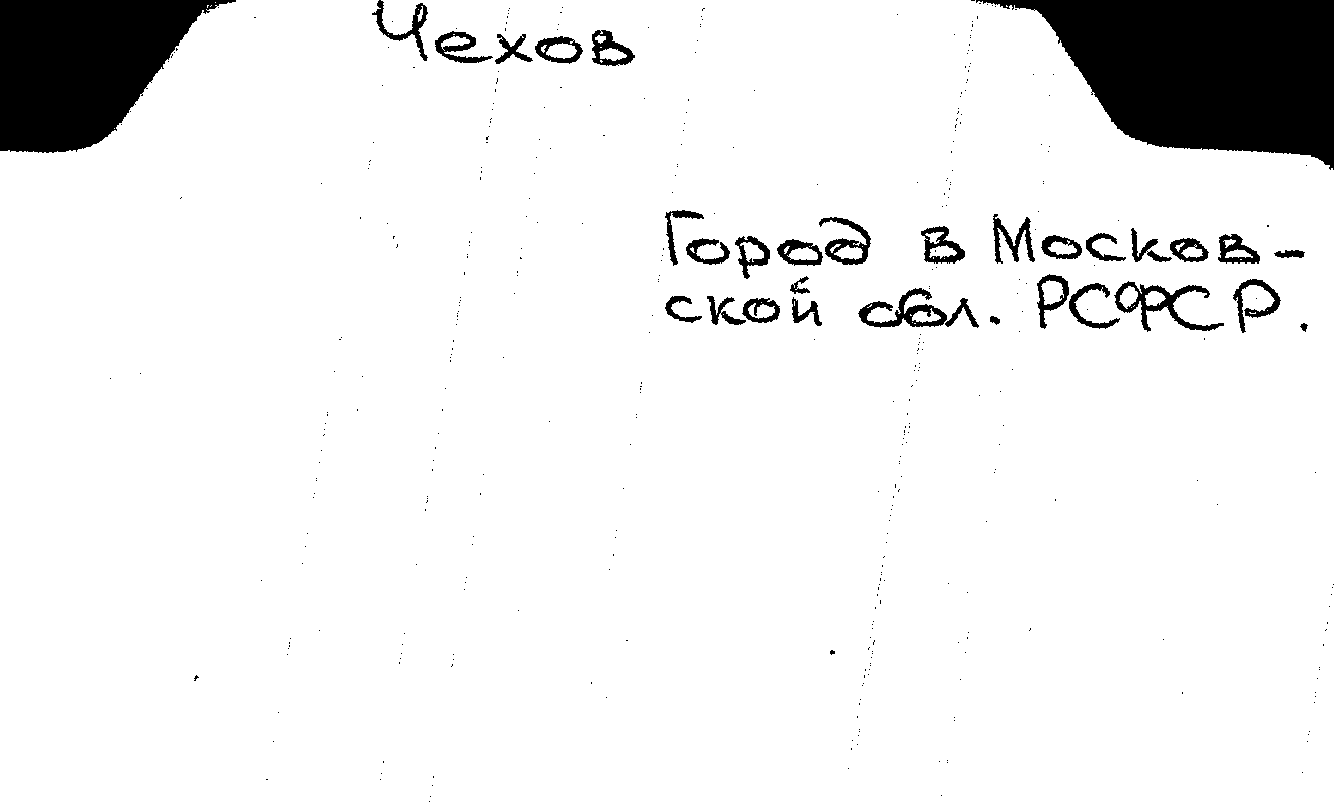 Чехов
Город в Москов-
ской обл. РСФСР.